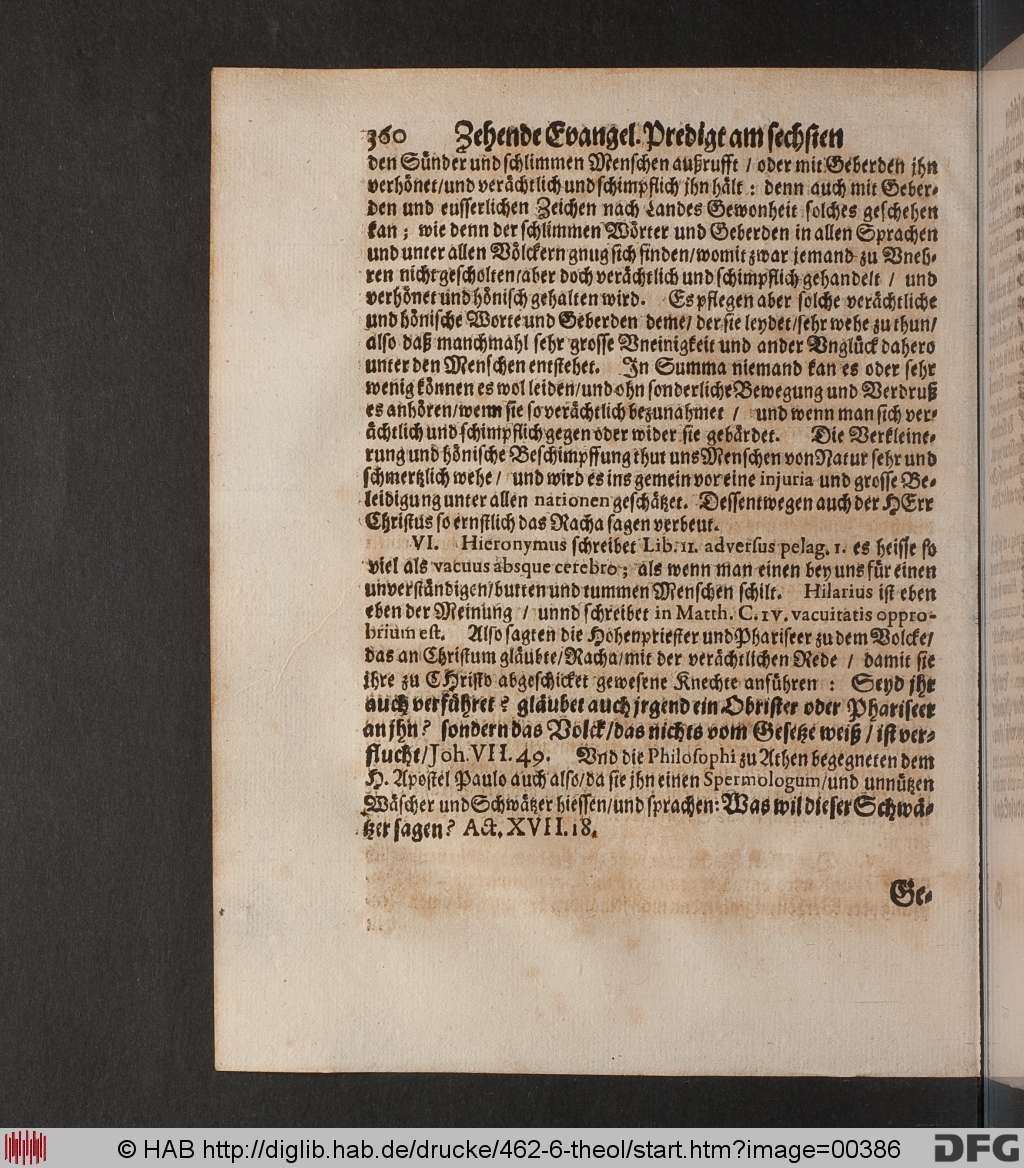 360 Zehende Evangel. Predigt am sechsten
den Sünder und schlimmen Menschen außrufft / oder mit Geberden jhn
verhönet/und verächtlich und schimpflich jhn hält : denn auch mit Geber-
den und eusserlichen Zeichen nach Landes Gewonheit solches geschehen
kan ; wie denn der schlimmen Wörter und Geberden in allen Sprachen
und unter allen Völckern gnug sich finden/womit zwar jemand zu Vneh-
ren nicht gescholten/aber doch verächtlich und schimpflich gehandelt / und
verhönet und hönisch gehalten wird. Es pflegen aber solche verächtliche
und hönische Worte und Geberden deme/ der sie leydet/sehr wehe zu thun/
also daß manchmahl sehr grosse Vneinigkeit und ander Vnglück dahero
unter den Menschen entstehet. In Summa niemand kan es oder sehr
wenig können es wol leiden/und ohn sonderliche Bewegung und Verdruß
es anhören/wenn sie so verächtlich bezunahmet / und wenn man sich ver-
ächtlich und schimpflich gegen oder wider sie gebärdet. Die Verkleine-
rung und hönische Beschimpffung thut uns Menschen von Natur sehr und
schmertzlich wehe / und wird es ins gemein vor eine injuria und grosse Be-
leidigung unter allen nationen geschätzet. Dessentwegen auch der HErr
Christus so ernstlich das Racha sagen verbeut.
VI. Hieronymus schreibet Lib. 11. adversus pelag. 1. es heisse so
viel als vacuus absque cerebro ; als wenn man einen bey uns für einen
unverständigen/butten und tummen Menschen schilt. Hilarius ist eben
eben der Meinung / unnd schreibet in Matth. C. 1v. vacuitatis oppro-
brium est. Also sagten die Hohenpriester und Phariseer zu dem Volcke/
das an Christum gläubte/Racha/mit der verächtlichen Rede / damit sie
jhre zu CHristo abgeschicket gewesene Knechte anführen : Seyd jhr
auch verführet ? gläubet auch jrgend ein Obrister oder Phariseer
an jhn ? sondern das Volck/das nichts vom Gesetze weiß / ist ver-
flucht/Joh. VII. 49. Vnd die Philosophi zu Athen begegneten dem
H. Apostel Paulo auch also/da sie jhn einen Spermologum/und unnützen
Wäscher und Schwätzer hiessen/und sprachen: Was wil dieser Schwä-
tzer sagen? Act. XVII. 18.
Ge-
© HAB http://diglib.hab.de/drucke/462-6-theol/start.htm?image=00386
DFG